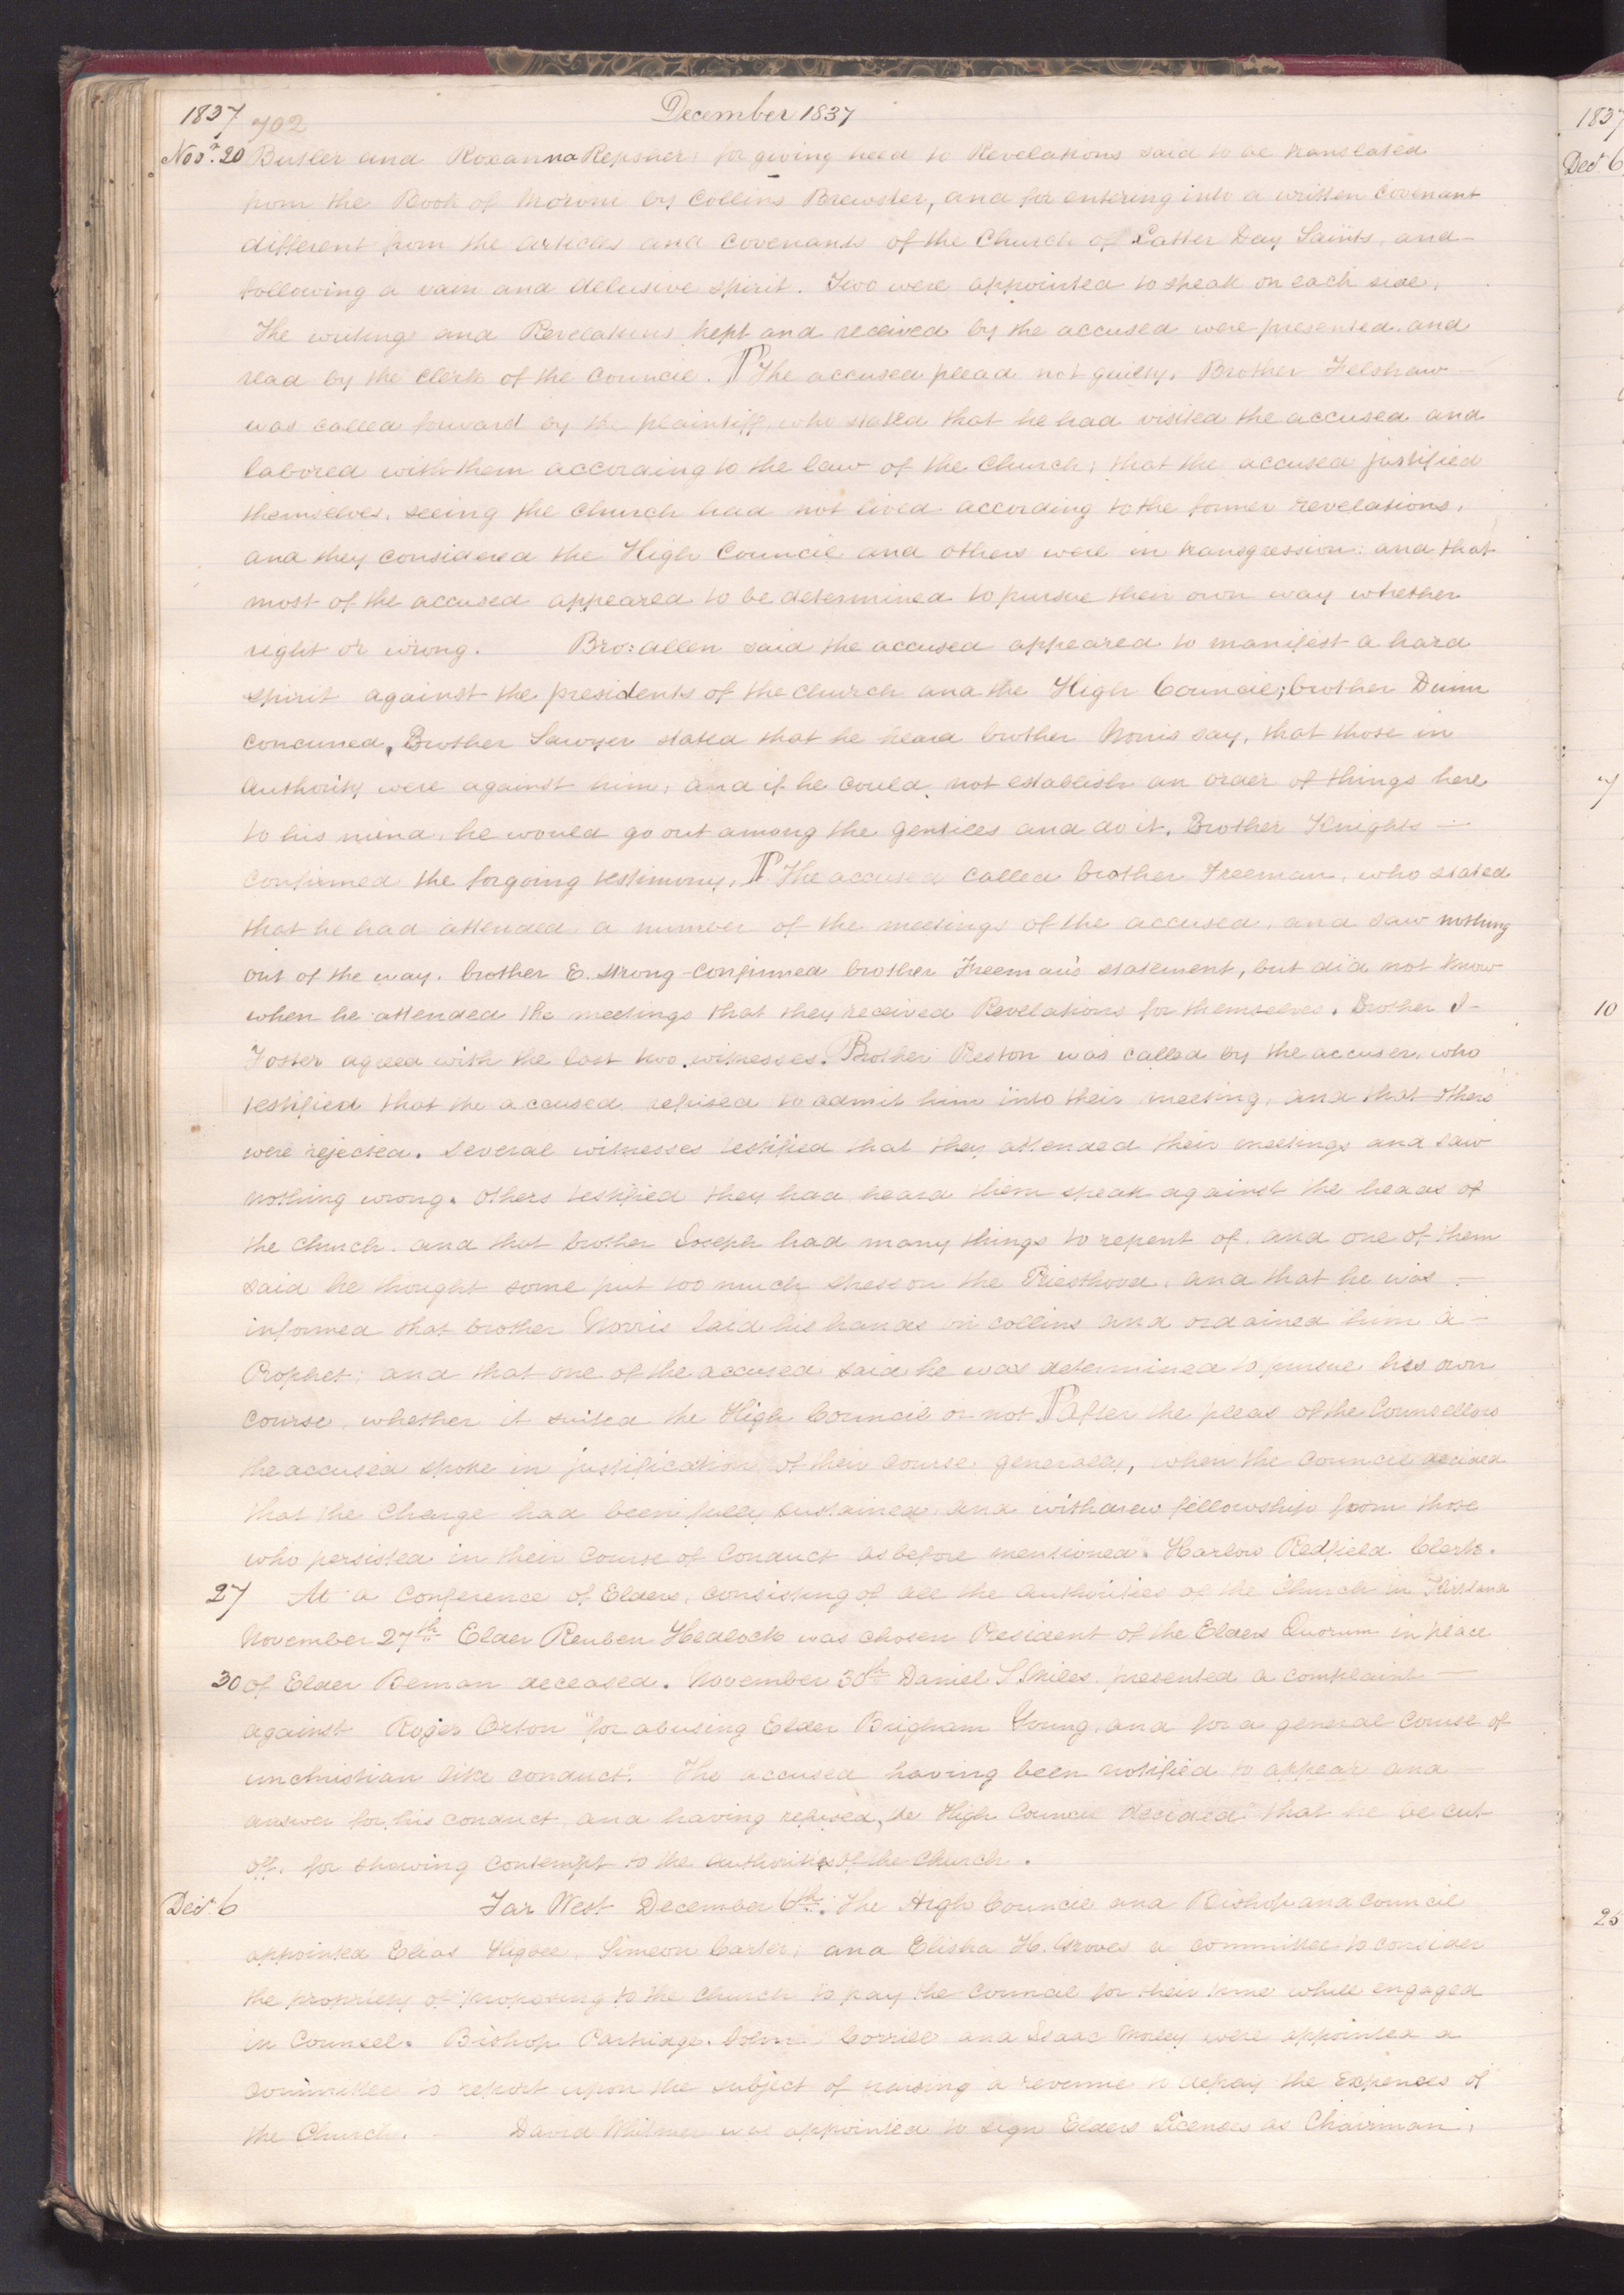 1837 702 December 1837
Nov.r 20 Butler and Roxanna Repsher: for giving heed to Revelations said to be translated
from the Book of Moroni by Collins Brewster, and for entering into a written Covenant
different from the articles and covenants of the Church of Latter Day Saints, and
following a vain and delusive spirit. Two were appointed to speak on each side.
The writings and Revelations kept and received by the accused were presented. and
read by the clerk of the Council. ¶ The accused plead not guilty. Brother Felshaw
was called forward by the plaintiff, who stated that he had visited the accused and
labored with them according to the law of the Church; that the accused justified
themselves, seeing the Church had not lived according to the former revelations.
and they considered the High Council and others were in transgression: and that
most of the accused appeared to be determined to pursue their own way whether
right or wrong. Bro: Allen said the accused appeared to manifest a hard
spirit against the presidents of the church and the High Council; brother Dunn
concurred, Brother Sawyer stated that he heard brother Norris say, that those in
authority were against him, and if he could not establish an order of things here
to his mind, he would go out among the gentiles and do it. Brother Knights —
confirmed the forgoing testimony. ¶ The accused called brother Freeman, who stated
that he had attended a number of the meetings of the accused, and saw nothing
out of the way. brother E. Strong confirmed brother Freeman's statement, but did not know
when he attended the meetings that they received Revelations for themselves. Brother I-
Foster agreed with the last two witnesses. Brother Reston was called by the accuser, who
testified that the accused refused to admit him into their meeting, and that others
were rejected. several witnesses testified that they attended their meetings and saw
nothing wrong. Others testified they had heard them speak against the heads of
the church. and that brother Joseph had many things to repent of. and one of them
said he thought some put too much stress on the Priesthood, and that he was —
informed that brother Norris laid his hands on collins and ordained him a —
Prophet; and that one of the accused said he was determined to pursue his own
course, whether it suited the High Council or not ¶ After the pleas of the Counsellors
the accused spoke in justification of their course generally, when the Council decided
that the Charge had been fully sustained, and withdrew fellowship from those
who persisted in their Course of Conduct as before mentioned". Harlow Redfield Clerk.
27 At a Conference of Elders, consisting of all the authorities of the Church in Kirtland
November 27th Elder Reuben Hedlock was chosen President of the Elders Quorum in place
30 of Elder Beman deceased. November 30th Daniel S. Miles, presented a complaint —
against Roger Orton "for abusing Elder Brigham Young, and for a general course of
unchristian like conduct". The accused having been notified to appear and
answer for his conduct and having refused, the High Council decided "that he be cut
off, for showing contempt to the authorities of the church.
Decr 6 Far West December 6th. The High Council and Bishop and Council
appointed Elias Higbee, Simeon Carter, and Elisha H. Groves a committee to consider
the propriety of proposing to the Church to pay the Council for their time while engaged
in Counsel. Bishop Partridge. John Corrill and Isaac Morley were appointed a
Committee to report upon the subject of raising a revenue to defray the Expences of
the Church. David Whitmer was appointed to sign Elders Licenses as Chairman;
1837
Decr 6
7
10
25